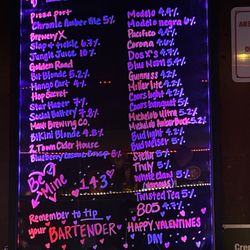 Pizza port
Chronic Amber Ale 5%
Brewery X
Slap & tickle 6.7%
Jungle Juice 10%
Golden Road
Bit Blonde 5.2%
Mango Cart 4%
Hop Secret
Star Hazer 7%
Social Battery 7.8%
Maui Brewing Co.
Bikini Blonde 4.8%
2 Town Cider House
Be
Mine
143
Remember to tip
your
BARTENDER
Modelo 4.4%
Modelo negra 6%
Pacifico 4.4%
Corona 4.6%
Dos X's 4.2%
Blue Moon 5.4%
Guinness 4.2%
Miller lite 4.2%
Coors light 4.2%
Coors banquet 5%
Michelob Ultra 4.2%
Bud light 4.2%
Budweiser 5%
Stella 5%
Truly 5%
White Claw 5%
Twisted Tea 5%
805 4.7%
HAPPY VALENTINES
DAY